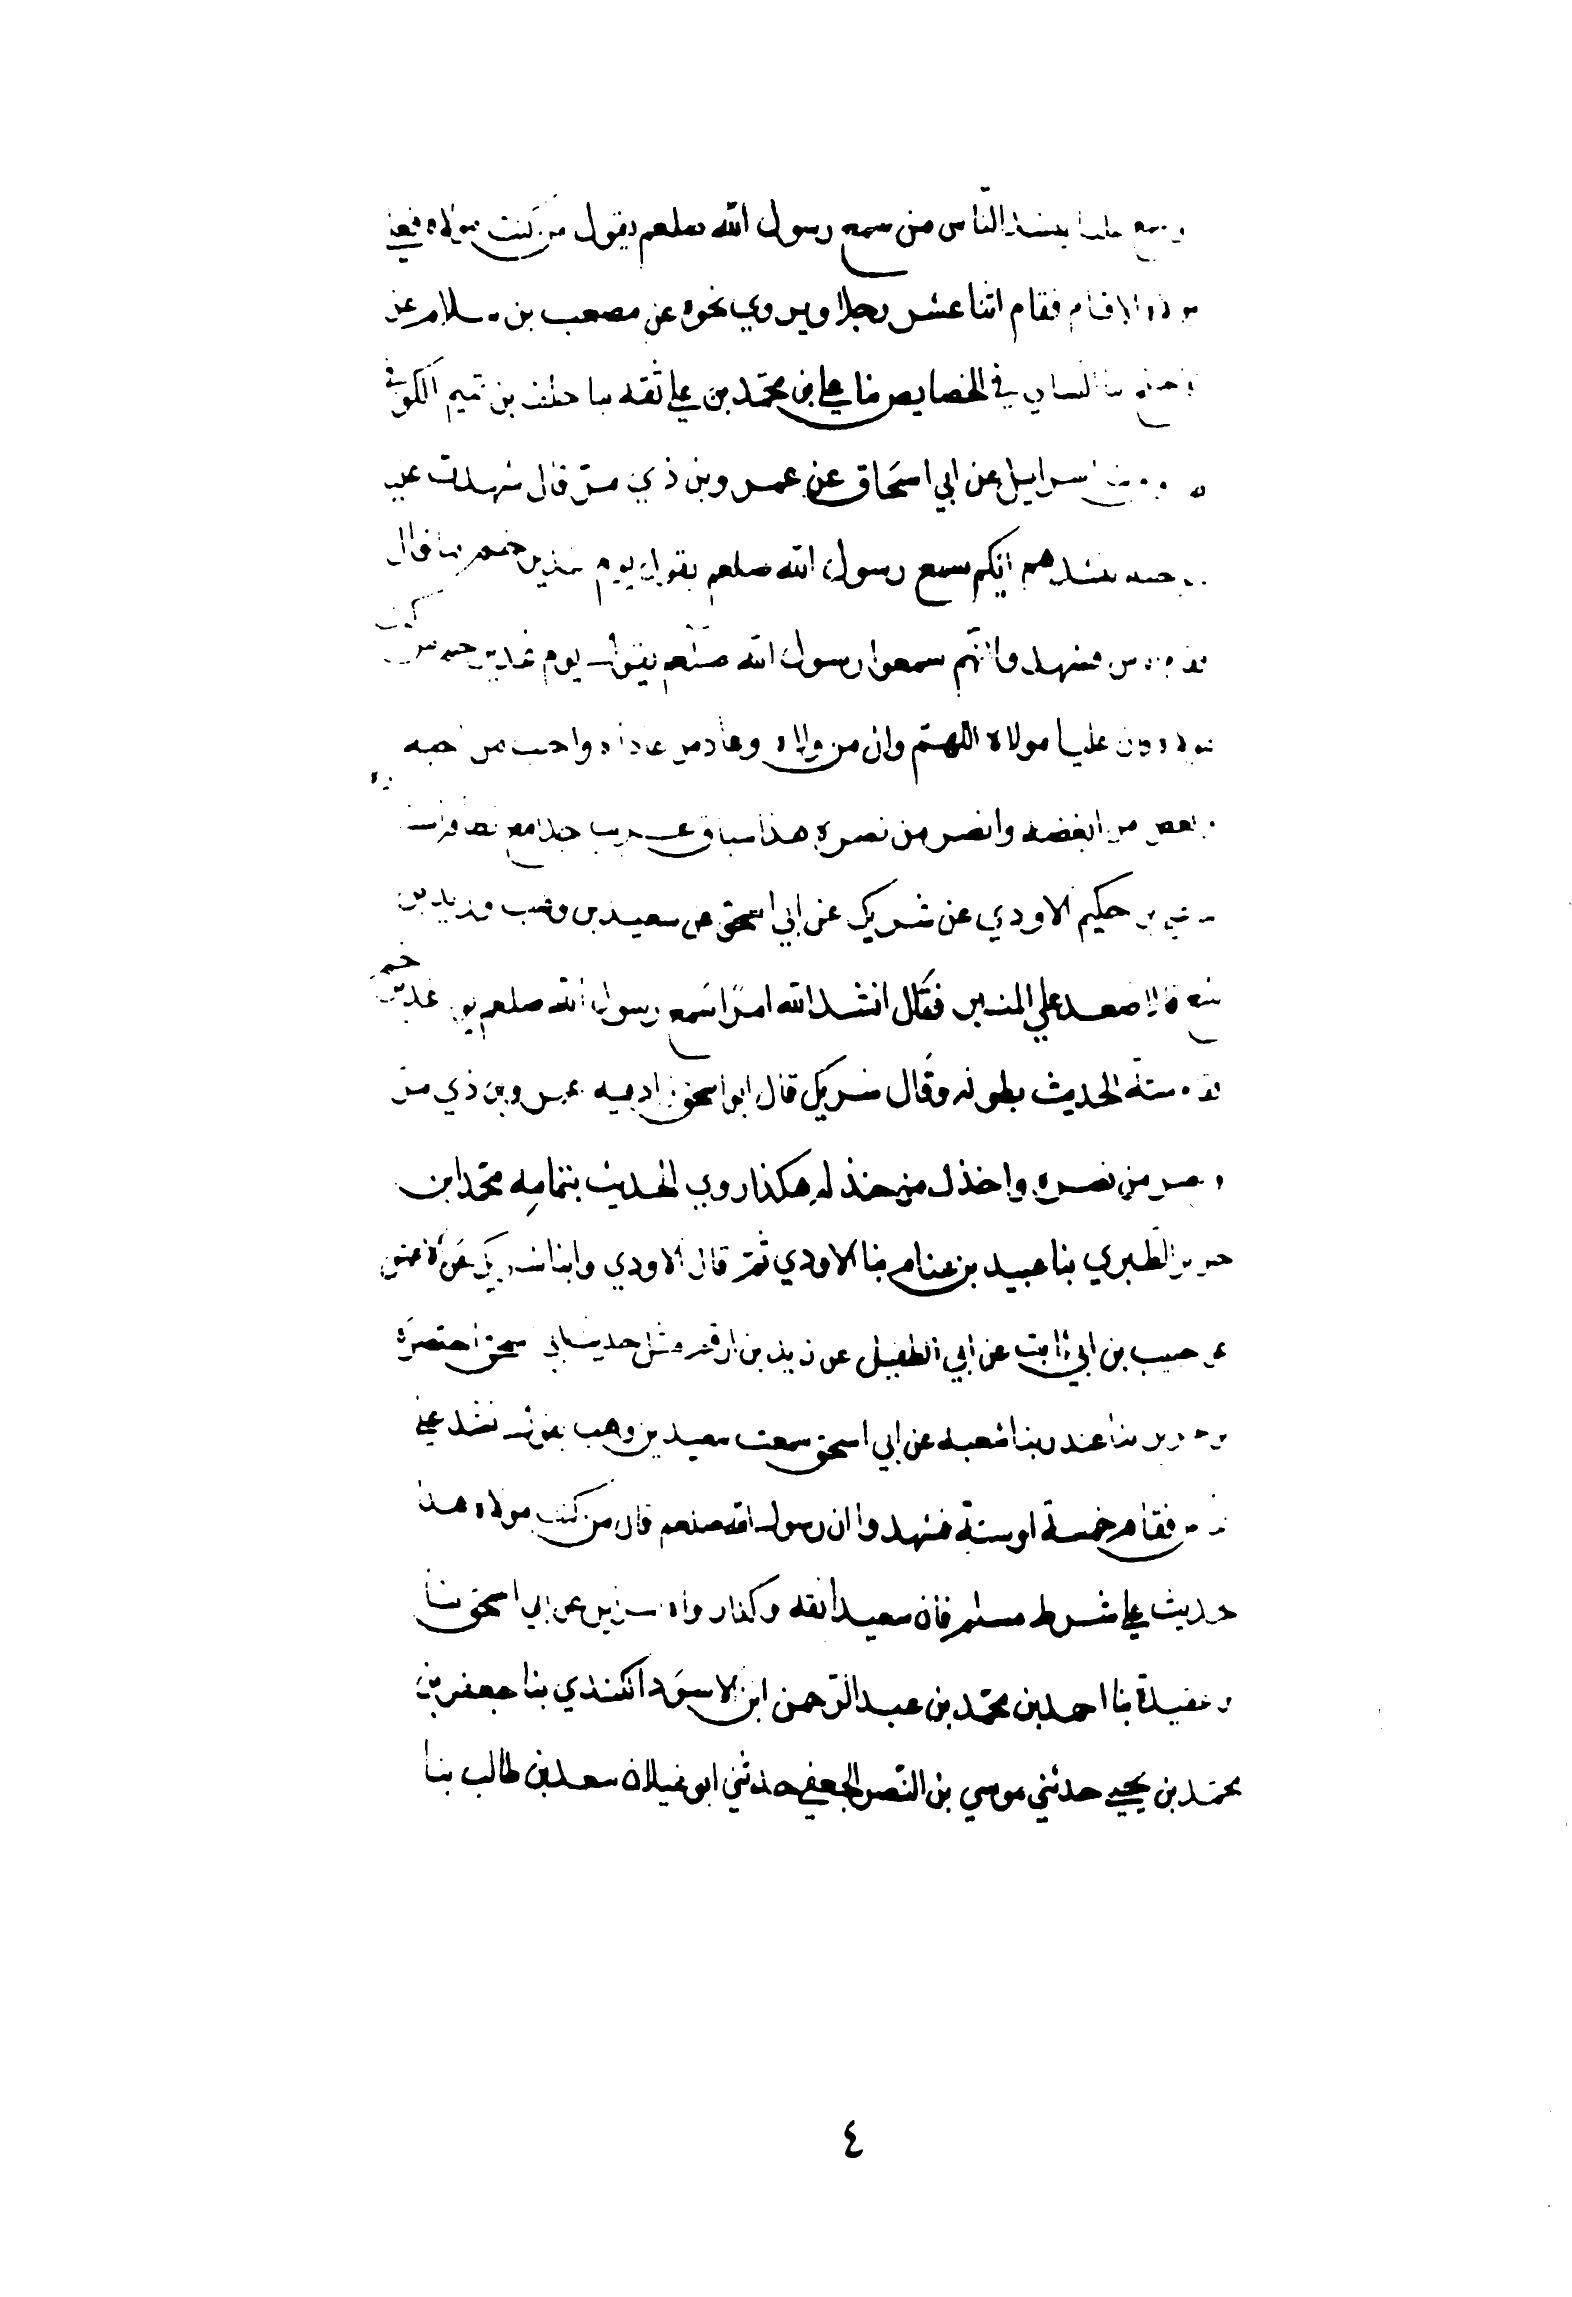 سمع عليا ينشد الناس من سمع رسول الله صلعم يقول من كنت مولاه فعلي
مولاه الا قام فقام اثنا عشر رجلا ويروي نحوه عن مصعب بن سلام عن
النساي في الخصايص نا علي بن محمد بن علي ثقه بنا خلف بن تميم الكوفي
اسرايل عن ابي اسحاق عن عمرو بن ذي مر قال شهدت علي
ينشدهم ايكم سمع رسول الله صلعم يقول يوم غدير خم ما قال
فشهدوا انهم سمعوا رسول الله صلعم يقول يوم غدير خم من كنت
مولاه فان عليا مولاه اللهم وال من والاه وعاد من عاداه واحب من احبه
من ابغضه وانصر من نصره هذا سياق غريب جدا مع
حكيم الاودي عن شريك عن ابي اسحق عن سعيد بن وهب وزيد بن
يثيع قالا صعد علي المنبر فقال انشد الله امرًا سمع رسول الله صلعم يوم غدير خم
ستة الحديث بطوله وقال شريك قال ابو اسحق زاد فيه عمرو بن ذي مر
من نصره واخذل من خذله هكذا روي الحديث بتمامه محمد ابن
جرير الطبري بنا عبيد بن غنام بنا الاودي ثم قال الاودي وابنا شريك عن الاعمش
عن حبيب بن ابي ثابت عن ابي الطفيل عن زيد بن ارقم مثل حديث ابي اسحق اختصره
غندر بنا شعبه عن ابي اسحق سمعت سعيد بن وهب يقول نشد علي
فقام خمسة او ستة فشهدوا ان رسول الله صلعم قال من كنت مولاه هذا
حديث علي شرط مسلم فان سعيدا ثقه وكذا رواه اسرايل عن ابي اسحق بنا
عقيدة بنا احمد بن محمد بن عبد الرحمن ابن الاسود الكندي بنا جعفر بن
محمد بن يحيي حدثني موسي بن النضر الجعفي حدثني ابو غيلان سعد بن طالب بنا
٤